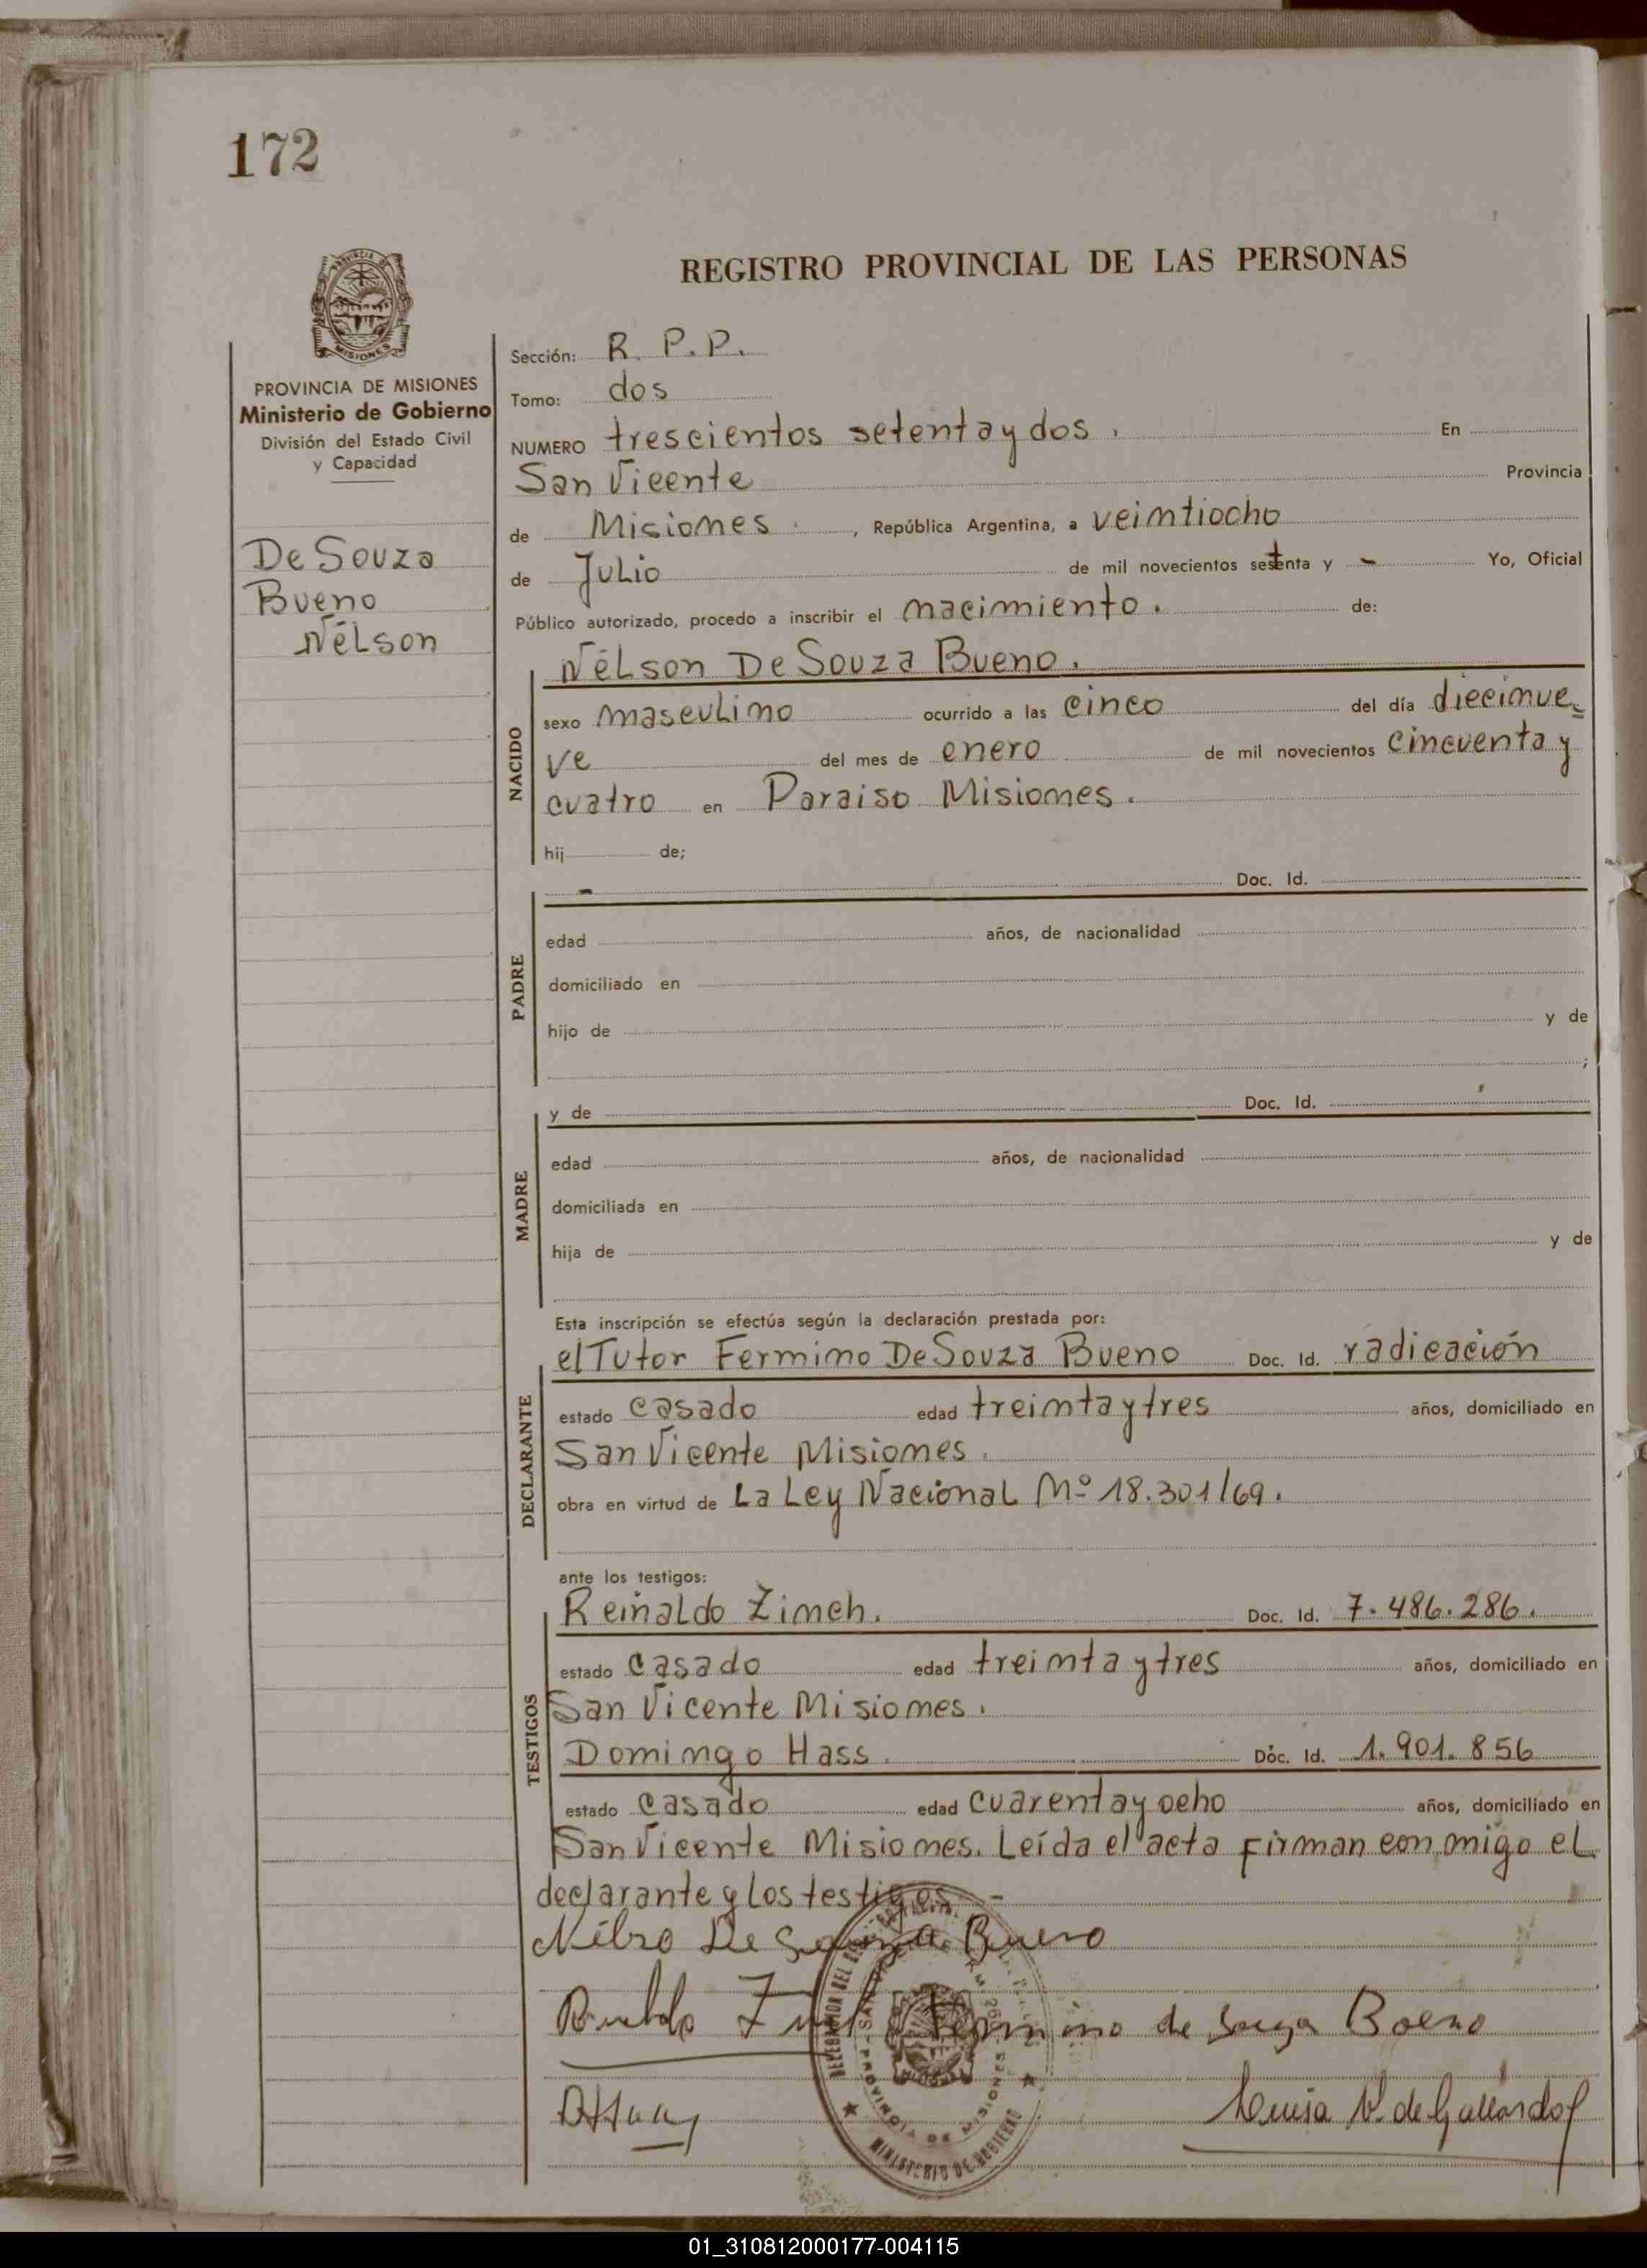 172
REGISTRO PROVINCIAL DE LAS PERSONAS
MISIONES
PROVINCIA DE MISIONES
Ministerio de Gobierno
División del Estado Civil
y Capacidad
De Souza
Bueno
Nélson
Sección: R. P. P.
Tomo: dos
NUMERO trescientos setenta y dos. En
San Vicente Provincia
de Misiones, República Argentina, a veintiocho
de Julio de mil novecientos setenta y - Yo, Oficial
Público autorizado, procedo a inscribir el nacimiento. de:
NACIDO
Nélson De Souza Bueno.
sexo masculino ocurrido a las cinco del día diecinue=
ve del mes de enero de mil novecientos cincuenta y
cuatro en Paraiso Misiones.
hij de;
PADRE
- Doc. Id.
edad años, de nacionalidad
domiciliado en
hijo de y de
;
MADRE
y de Doc. Id.
edad años, de nacionalidad
domiciliada en
hija de y de
Esta inscripción se efectúa según la declaración prestada por:
DECLARANTE
el Tutor Fermino De Souza Bueno Doc. Id. radicación
estado casado edad treinta y tres años, domiciliado en
San Vicente Misiones.
obra en virtud de La Ley Nacional Nº 18.301/69.
ante los testigos:
TESTIGOS
Reinaldo Zimeh. Doc. Id. 7.486.286.
estado casado edad treinta y tres años, domiciliado en
San Vicente Misiones.
Domingo Hass. Doc. Id. 1.901.856
estado casado edad cuarenta y ocho años, domiciliado en
San Vicente Misiones. Leída el acta firman con migo el
declarante y los testigos. -
De Souza Bueno
Fermino de Souza Boeno
Luisa V. de Gallardo
PROVINCIA DE MISIONES
MINISTERIO DE GOBIERNO
01_310812000177-004115